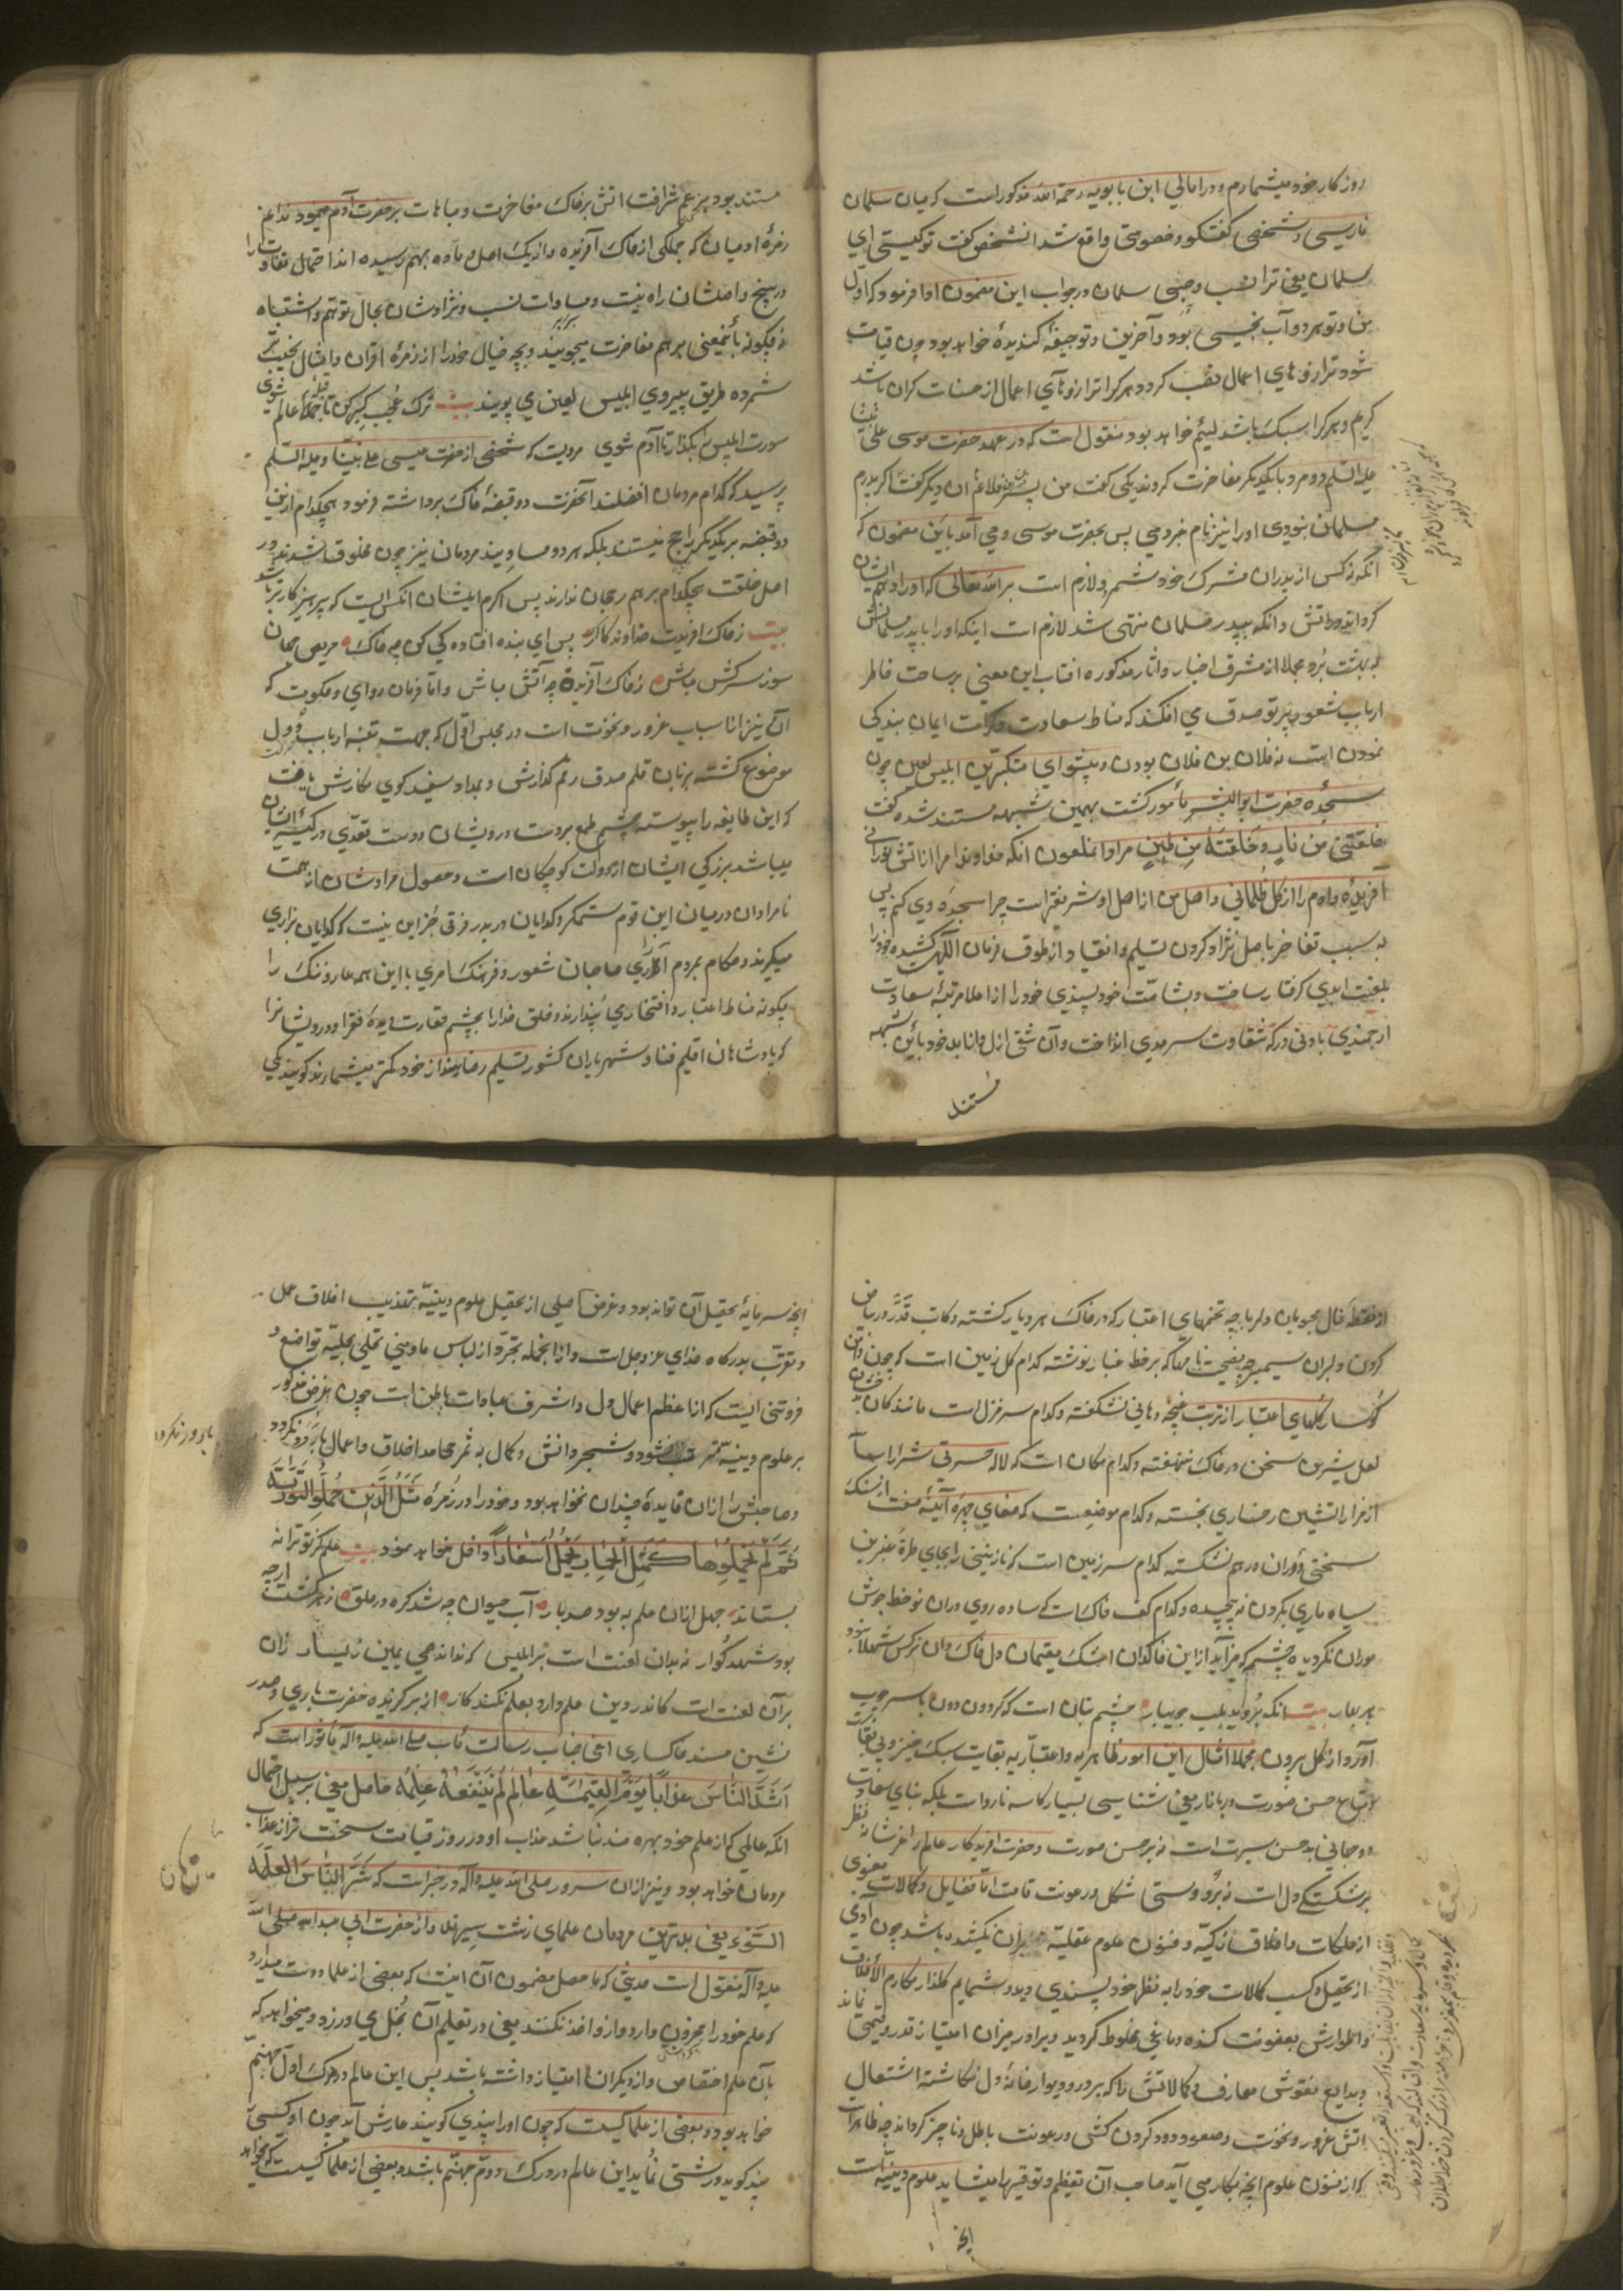 روزکار خود میشمارم و در امالی ابن بابویه رحمه الله مذکور است که میان سلمان
فارسی و شخصی کفتکو و خصومتی واقع شد انشخص کفت تو کیستی ای
سلمان یعنی ترا نسب و حسبی سلمان در جواب این مضمون ادا فرمود که اول
من و تو هر دو آب نجسی بود و آخر من و تو جیفهٔ کندیدهٔ خواهد بود چون قیامت
شود ترازوهای اعمال نصب کردد هر کرا ترازوهای اعمال از حسنات کران باشد
کریم و هر کرا سبک باشد لئیم خواهد بود منقول است که در عهد حضرت موسی علی نبینا
علیه السلم دو مرد با یکدیکر مفاخرت کردند یکی کفت من پسر فلانم ان دیکر کفت اکر پدرم
مسلمان نبودی او را نیز نام نبردمی پس بحضرت موسی وحی آمد باین مضمون که
آنکه نه کس از پدران مشرک خود شمرد لازم است بر الله تعالی که او را دهم ایشان
کرداند در آتش و آنکه به پدر مسلمان منتهی شد لازم است اینکه او را با پدر مسلمانش
به بهشت برد مجملا از مشرق اخبار و اثار مذکوره افتاب این معنی بر ساحت خاطر
ارباب شعور پرتو صدق می افکند که مناط سعادت و کرامت ایمان بندکی
نمودن است نه فلان بن فلان بودن و پیشوای متکبرین ابلیس لعین چون
بسجدهٔ حضرت ابوالبشر مأمور کشت بهمین شبهه مستند شده کفت
خلقتنی من نار و خلقته من طین مراد انملعون انکه خداوندا مرا از آتش نورانی
آفریدهٔ و آدم را از کل ظلمانی و اصل من از اصل او شریفتر است چرا سجدهٔ وی کنم پس
به سبب تفاخر باصل نژاد کردن تسلیم و انقیاد از طوق فرمان الهی کشیده خود را
بلعنت ابدی کرفتار ساخت و بشامت خود پسندی خود را از اعلا مرتبهٔ سعادت
ارجمندی بادنی درکه شقاوت سرمدی انداخت و آن شقی ازل و ابد خود باین شبهه
مستند
مستند بود بزعم شرافت اتش بر خاک مفاخرت و مباهات بر حضرت آدم مینمود ندانم
زمرهٔ ادمیان که جملکی از خاک آفریده و از یک اصل و ماده بهم رسیده اند احتمال تفاوت را
در بیخ و اصلشان راه نیست و مساوات نسب و نژادشان مجال توهم و اشتباه
نه چکونه باینمعنی بر هم مفاخرت میجویند و بچه خیال خود را از زمرهٔ اقران و امثال نجیب تر
شمرده طریق پیروی ابلیس لعین می پویند بیت ترک عجب و کبر کن تا قبلهٔ عالم شوی
سیرت ابلیس بکذار تا آدم شوی مرویست که شخصی از حضرت عیسی علی نبینا و علیه السلم
پرسید که کدام مردمان افضلند آنحضرت دو قبضهٔ خاک برداشته فرمود هیچکدام از این
دو قبضه بر یکدیکر راجح نیستند بلکه هر دو مساویند مردمان نیز چون مخلوق شدند در
اصل خلقت هیچکدام بر هم رجحان ندارند پس اکرم ایشان انکس است که پرهیزکارتر باشد
بیت ز خاک افریدت خداوند پاک پس ای بنده افتادکی کن چو خاک حریص و جهان
سوز و سرکش مباش ز خاک آفریدت چو آتش مباش و اما فرمان روای و حکومت که
آن نیز از اسباب غرور و نخوت است در مجلس اول که جهت تنبه ارباب دول
موضوع کشته بزبان قلم صدق رقم کذارش و بمداد سفید کوی نکارش یافت
که این طایفه را پیوسته چشم طمع بر دست درویشان و دست تعدی در کیسهٔ ایشان
میباشد بزرکی ایشان از دولت کوچکان است و حصول مرادشان از همت
نامرادان در میان این قوم ستمکر و کدایان در بدر فرقی جز این نیست که کدایان بزاری
میکیرند و حکام بمردم آزاری صاحبان شعور و فرهنک امری با این همه عار و ننک را
چکونه مناط اعتبار و افتخار می پندارند و خلق خدا را بچشم حقارت دیده فقرا و درویشانرا
که پادشاهان اقلیم فنا و شهریاران کشور تسلیم و رضایند از خود کمتر میشمارند کویند یکی
از نقطهٔ خال محبوبان دلربا چه تخمهای اعتبار که در خاک هر دیار کشته و کاتب قدر در بیاض
کردن دلبران سیمبر چه نامها که بر خط غبار نوشته کدام کل زمین است که چون دامن
کوهسار کلهای اعتبار از تربت غنچه دهانی نشکفته و کدام سرمنزل است مانند کان بدخشان
لعل شیرین سخن در خاک ننهفته و کدام مکان است که لاله حسرتی شراراسا
از مزار اتشین رخساری نجسته و کدام موضعست که صفای چهرهٔ آئینهٔ صفت از سنک
سختی دوران در هم نشکسته کدام سرزمین است که نازنینی را بجای طرهٔ عنبرین
سیاه ماری بکردن نه پیچیده و کدام کف خاک است که ساده روی دران نو خط جوش
موران نکردیده چشم که می زاید از این خاکدان اشک یتیمان دل خاک دان نرکس شهلا بود
بهر بهار بیت انکه بروید بلب جویبار چشم بتان است که کردون دون با سر چوب
آورد از کل برون مجملا امثال این امور ظاهریه و اعتباریه بغایت سبک خیز و بی بقا
متاع حسن صورت در بازار معنی شناسی بسیار کاسد نارواست بلکه بنای سعادت
دو جهانی بر حسن سیرت است نه بر حسن صورت و حضرت افریدکار عالم را عز شانه نظر
بر شکستکی دل است نه بر درستی شکل و رعونت قامت اما فضایل و کمالات معنوی
از ملکات و اخلاق زکیه و فنون علوم عقلیه بران نکشیده باشد چون آدمی
از تحصیل و کسب کمالات خود را به نظر خود پسندی دید و شمایم کلذار مکارم الاخلاق
و اطوارش بعفونت کنده دماغی مخلوط کردید دیرا در میزان اعتبار قدر و قیمتی نماند
و بدایع نقوش معارف و کمالاتش را که بر در و دیوار خانهٔ دل نکاشته اشتعال
اتش غرور و نخوت و صعود دود کردن کشی و رعونت باطل و ناچیز کرداند چه ظاهر است
که از فنون علوم انچه بکار می آید صاحب آن تعظیم و توقیر را میشاید علوم دینیه است
انچه
انچه سرمایهٔ تحصیل آن تواند بود و غرض اصلی از تحصیل علوم دینیه تهذیب اخلاق عمل
و تقرب بدرکاه خدای عز و جل است و از انجمله تجرد از لباس ما و منی تحلی بحلیهٔ تواضع و
فروتنی است که از اعظم اعمال دل و اشرف عبادات باطن است چون غرض مذکور
بر علوم دینیه مترتب نشود و شجر دانش و کمال به ثمر محامد اخلاق و اعمال بارور نکردد
و صاحبش را از ان فایدهٔ چندان نخواهد بود و خود را در زمرهٔ مثل الذین حملوا التوریة
ثم لم یحملوها کمثل الحمار یحمل اسفارا داخل خواهد نمود بیت علم کز تو ترا نه
بستاند جهل از ان علم به بود صد بار آب حیوان چه شد کره در حلق زهر کشت ارچه
بود شهد کوار نه بدان لعنت است بر ابلیس که نداند همی یمین ز یسار زان
بر آن لعنت است کاندر دین علم دارد بعلم نکند کار از برکزیده حضرت باری و صدر
نشین مسند خاکساری اعنی جناب رسالت مآب صلی الله علیه و آله مأثور است که
اشد الناس عذابا یوم القیمة عالم لم ینفعه علمه حاصل معنی بر سبیل اجمال
انکه عالمی که از علم خود بهره مند نباشد عذاب او در روز قیامت سخت تر از عذاب
مردمان خواهد بود و نیز از ان سرور صلی الله علیه و آله در خبر است که شر الناس العلماء
السوء یعنی بدترین مردمان علمای زشت سیرتند و از حضرت ابی عبد الله صلی الله
علیه و آله منقول است حدیثی که ما حصل مضمون آن اینست که بعضی از علما دوست میدارد
که علم خود را مخزون دارد و از او اخذ نکنند یعنی در تعلیم آن بخل می ورزد و میخواهد که
بآن علم اختصاص و از دیکران امتیاز داشته باشد پس این عالم در درک اول جهنم
خواهد بود و بعضی از علما کیست که چون او را پندی کویند عارش آید چون او کسی را
پند کوید درشتی نماید این عالم در درک دوم جهنم باشد و بعضی از علما کیست که میخواهد
بارور نکردد